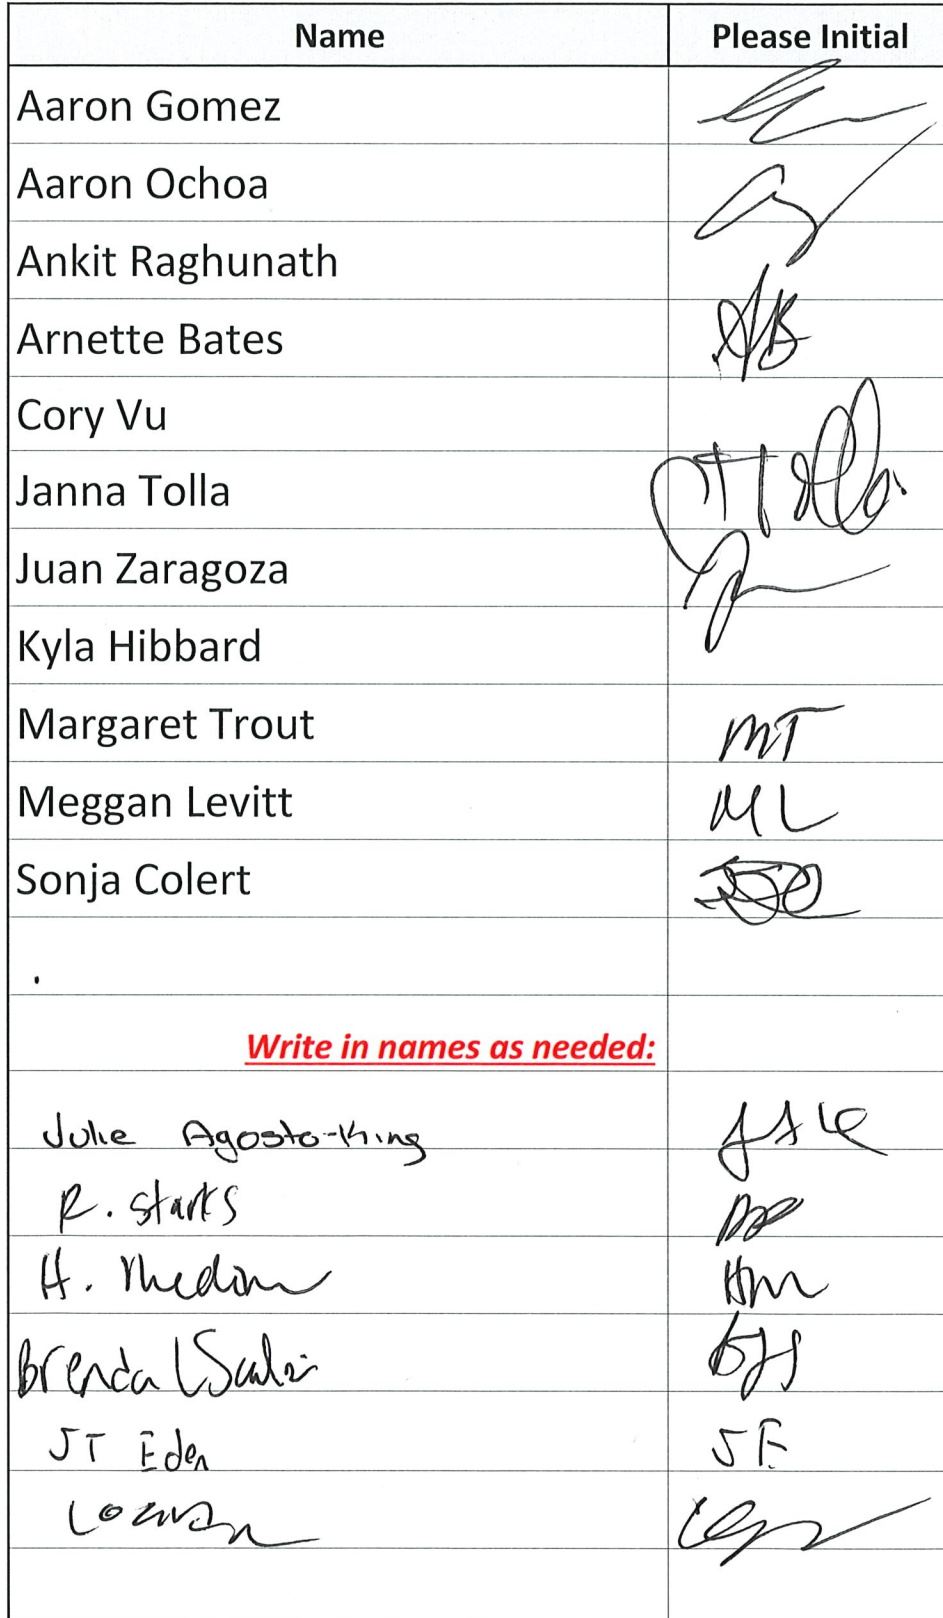 Name Please Initial
Aaron Gomez
Aaron Ochoa
Ankit Raghunath
Arnette Bates AB
Cory Vu
Janna Tolla JTolla
Juan Zaragoza
Kyla Hibbard
Margaret Trout MT
Meggan Levitt ML
Sonja Colert
.
Write in names as needed:
Julie Agosto-King JAK
R. Starks
H. Medina HM
Brenda
JT Eden JE